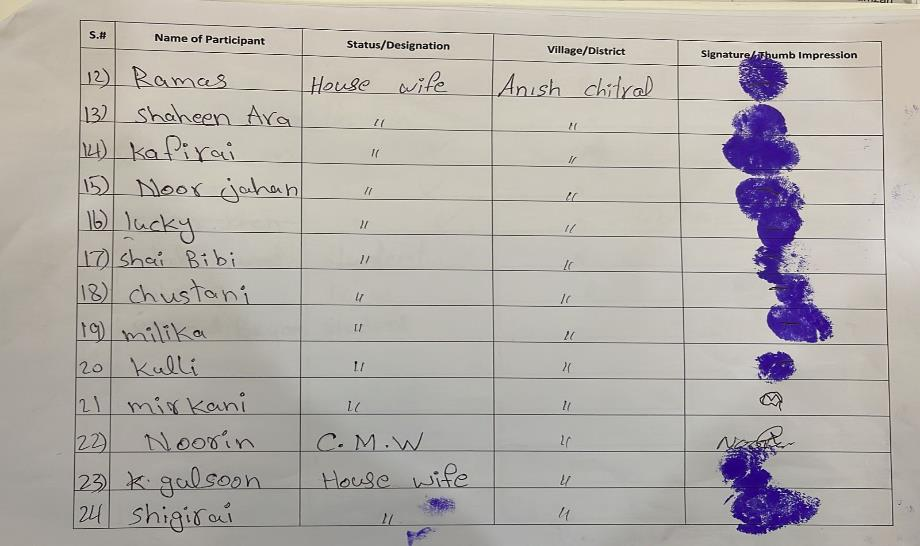 S.# Name of Participant Status/Designation Village/District Signature/Thumb Impression
12) Ramas House wife Anish chitral
13) Shaheen Ara " "
14) Kafirai " "
15) Noor jahan " "
16) lucky " "
17) Shai Bibi " "
18) chustani " "
19) milika " "
20 Kulli " "
21 mir kani " "
22) Noorin C.M.W "
23) K. gulsoon House wife "
24 Shigirai " "